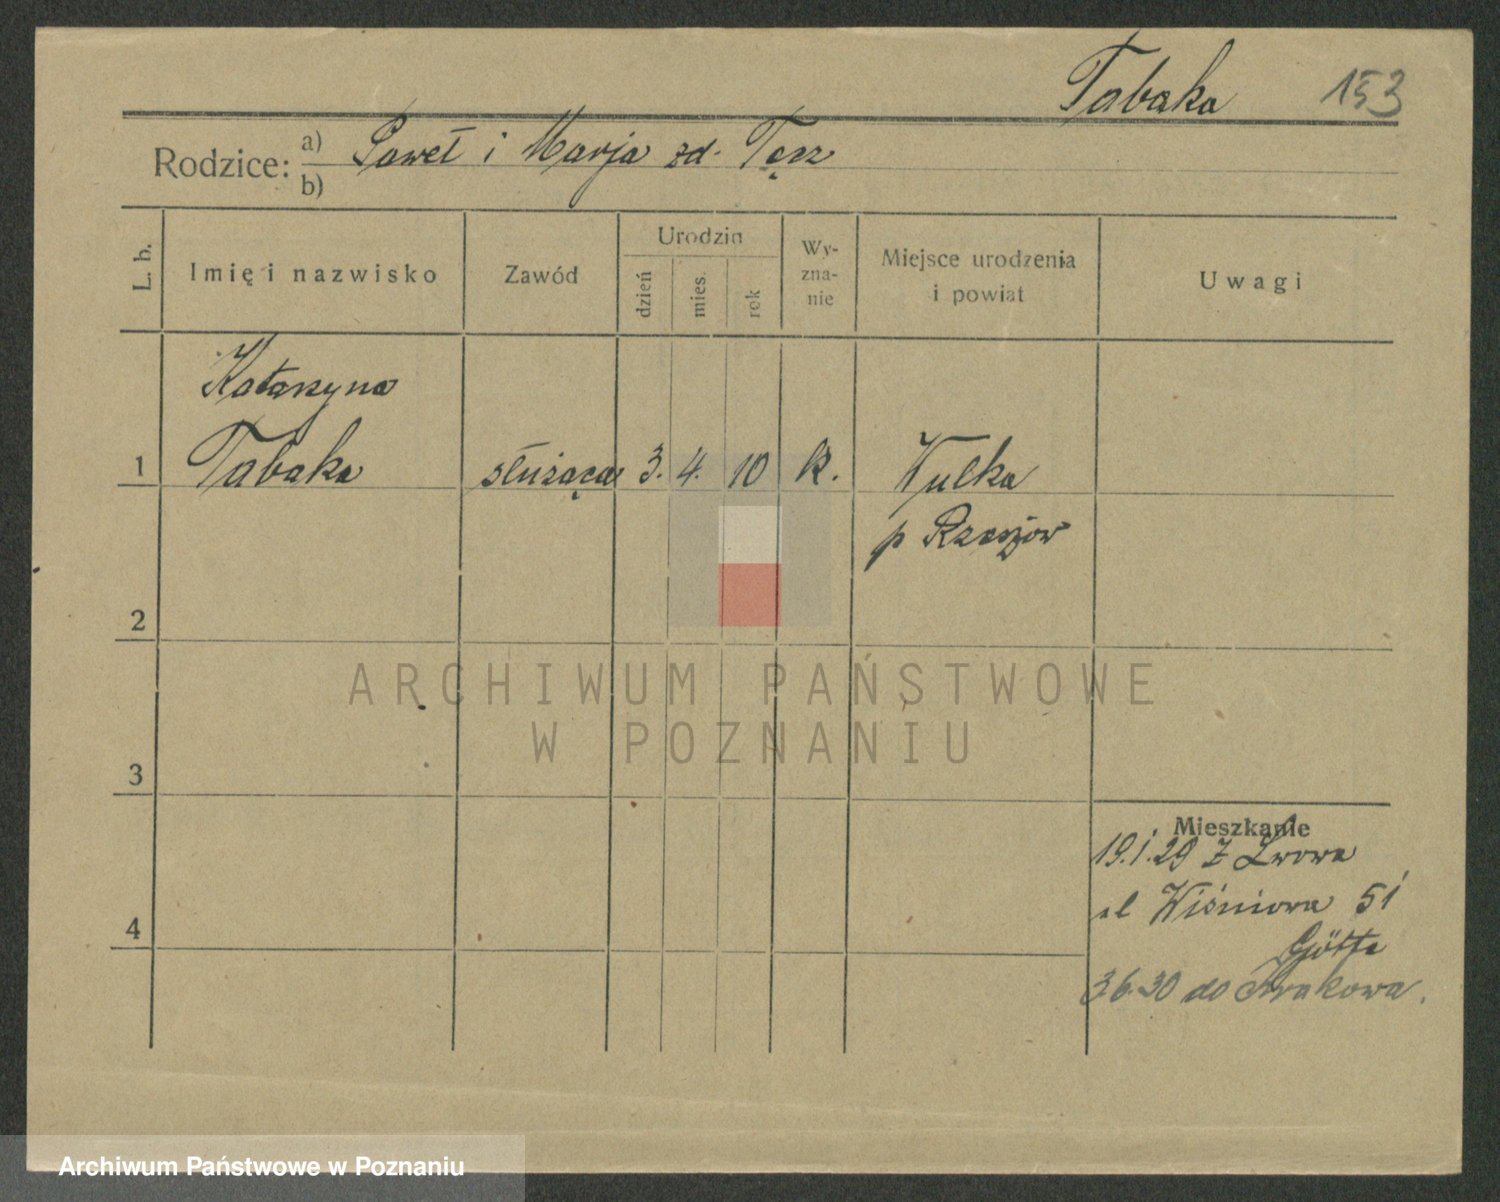 Tabaka 153
Rodzice: a) Paweł i Marja zd. Tęcz
b)
L. b. Imię i nazwisko Zawód Urodzin dzień mies. rok Wy-zna-nie Miejsce urodzenia i powiat Uwagi
Katarzyna
1 Tabaka służąca 3. 4. 10 k. Wulka
p Rzeszów
2
ARCHIWUM PAŃSTWOWE
W POZNANIU
3
Mieszkanie
19.1.29 z Lwowa
ul Wiśniowa 51
4 Götte
3.6.30 do Krakowa.
Archiwum Państwowe w Poznaniu